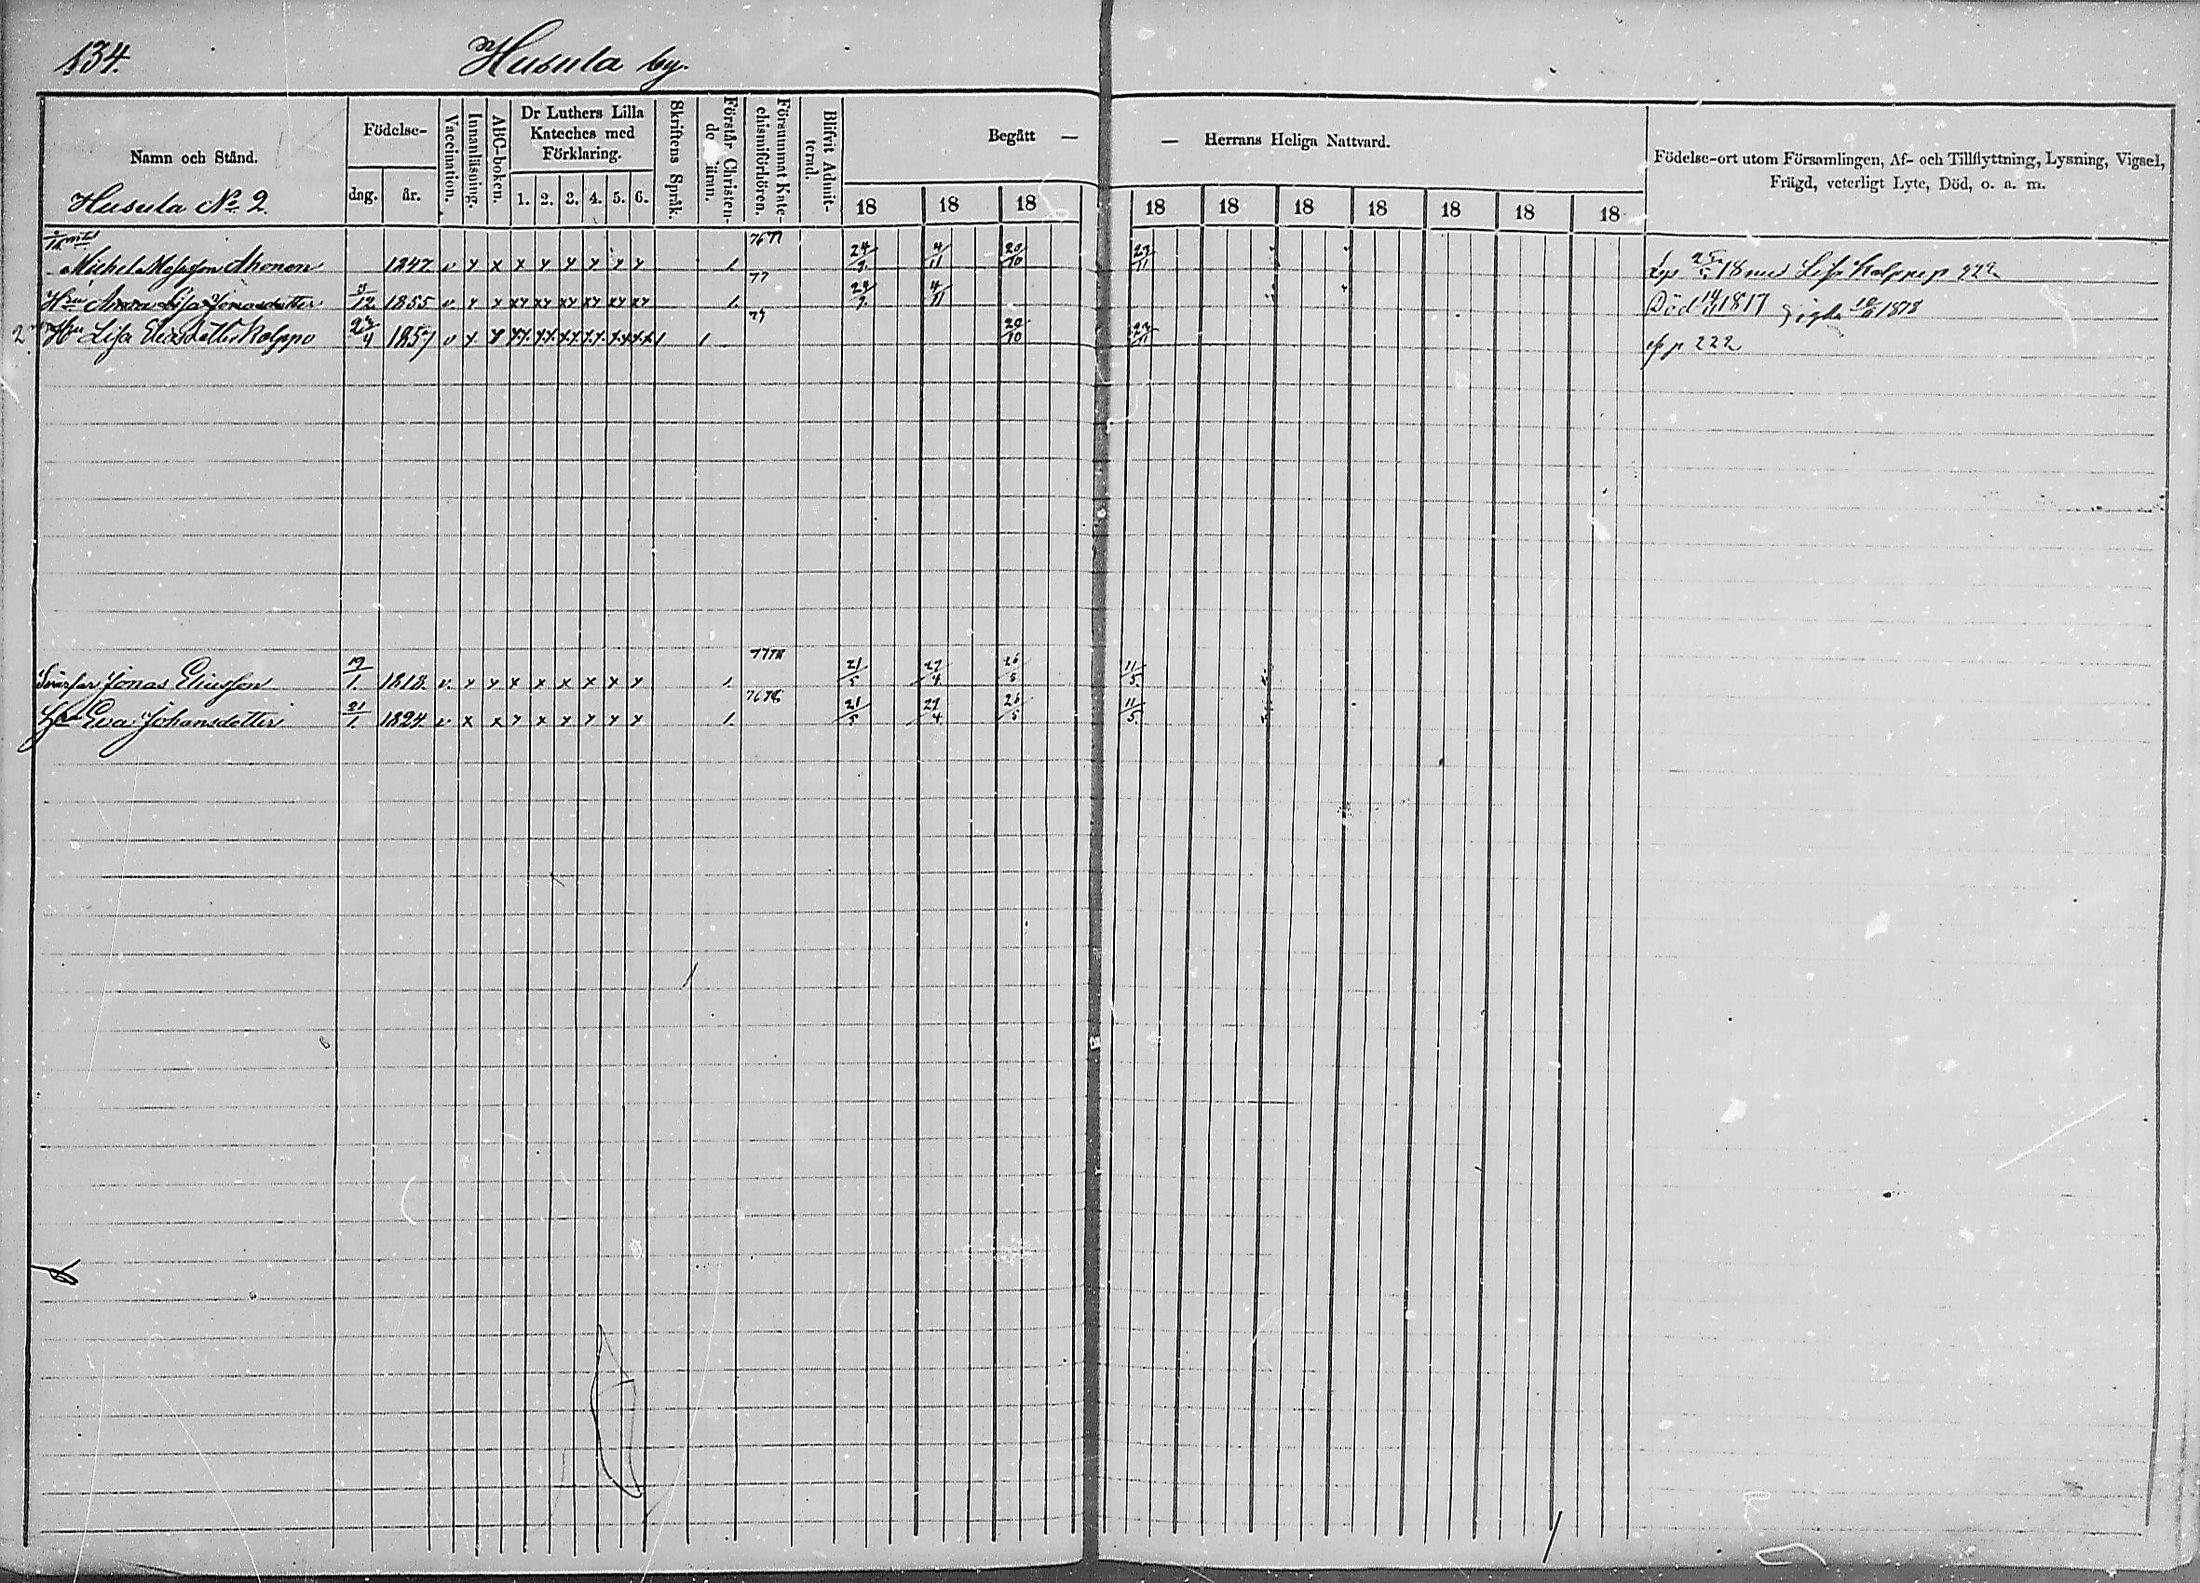 134.
Husula by.
Namn och Stånd.
Födelse-
dag.
år.
Vaccination.
Innanläsning.
ABC-boken.
Dr Luthers Lilla
Kateches med
Förklaring.
1. 2. 3. 4. 5. 6.
Skriftens Språk.
Förstår Christen-
Försummat Kate-
chismiförhören.
Blifvit Admit-
terad.
Begått —
— Herrans Heliga Nattvard.
18 18 18 18 18 18 18 18 18 18
Födelse-ort utom Församlingen, Af- och Tillflyttning, Lysning, Vigsel,
Frägd, veterligt Lyte, Död, o. a. m.
Husula No 2.
Michel Ahonen 1847 v x x x x x x x x 1. 24/9. 4/11 20/10 23/11 med Lisa Kolppo p 222
Hu Anna Lisa Jonasdotter 1855 v. x x xx xx xx xx xx xx 1. 77 24/9. 4/11 Död
2 Hu Lisa Eliasdotter Kolppo 1857 v x. 1 20/10 23/11 p 222
Jonas Eliasson 19/1. 1818 v. x x x x x x x x 1. 21/5 27/4. 26/5 11/5.
Eva Johansdotter 21/1. 1824 v x x x x x x x x 1. 21/5 27/4. 26/5 11/5.